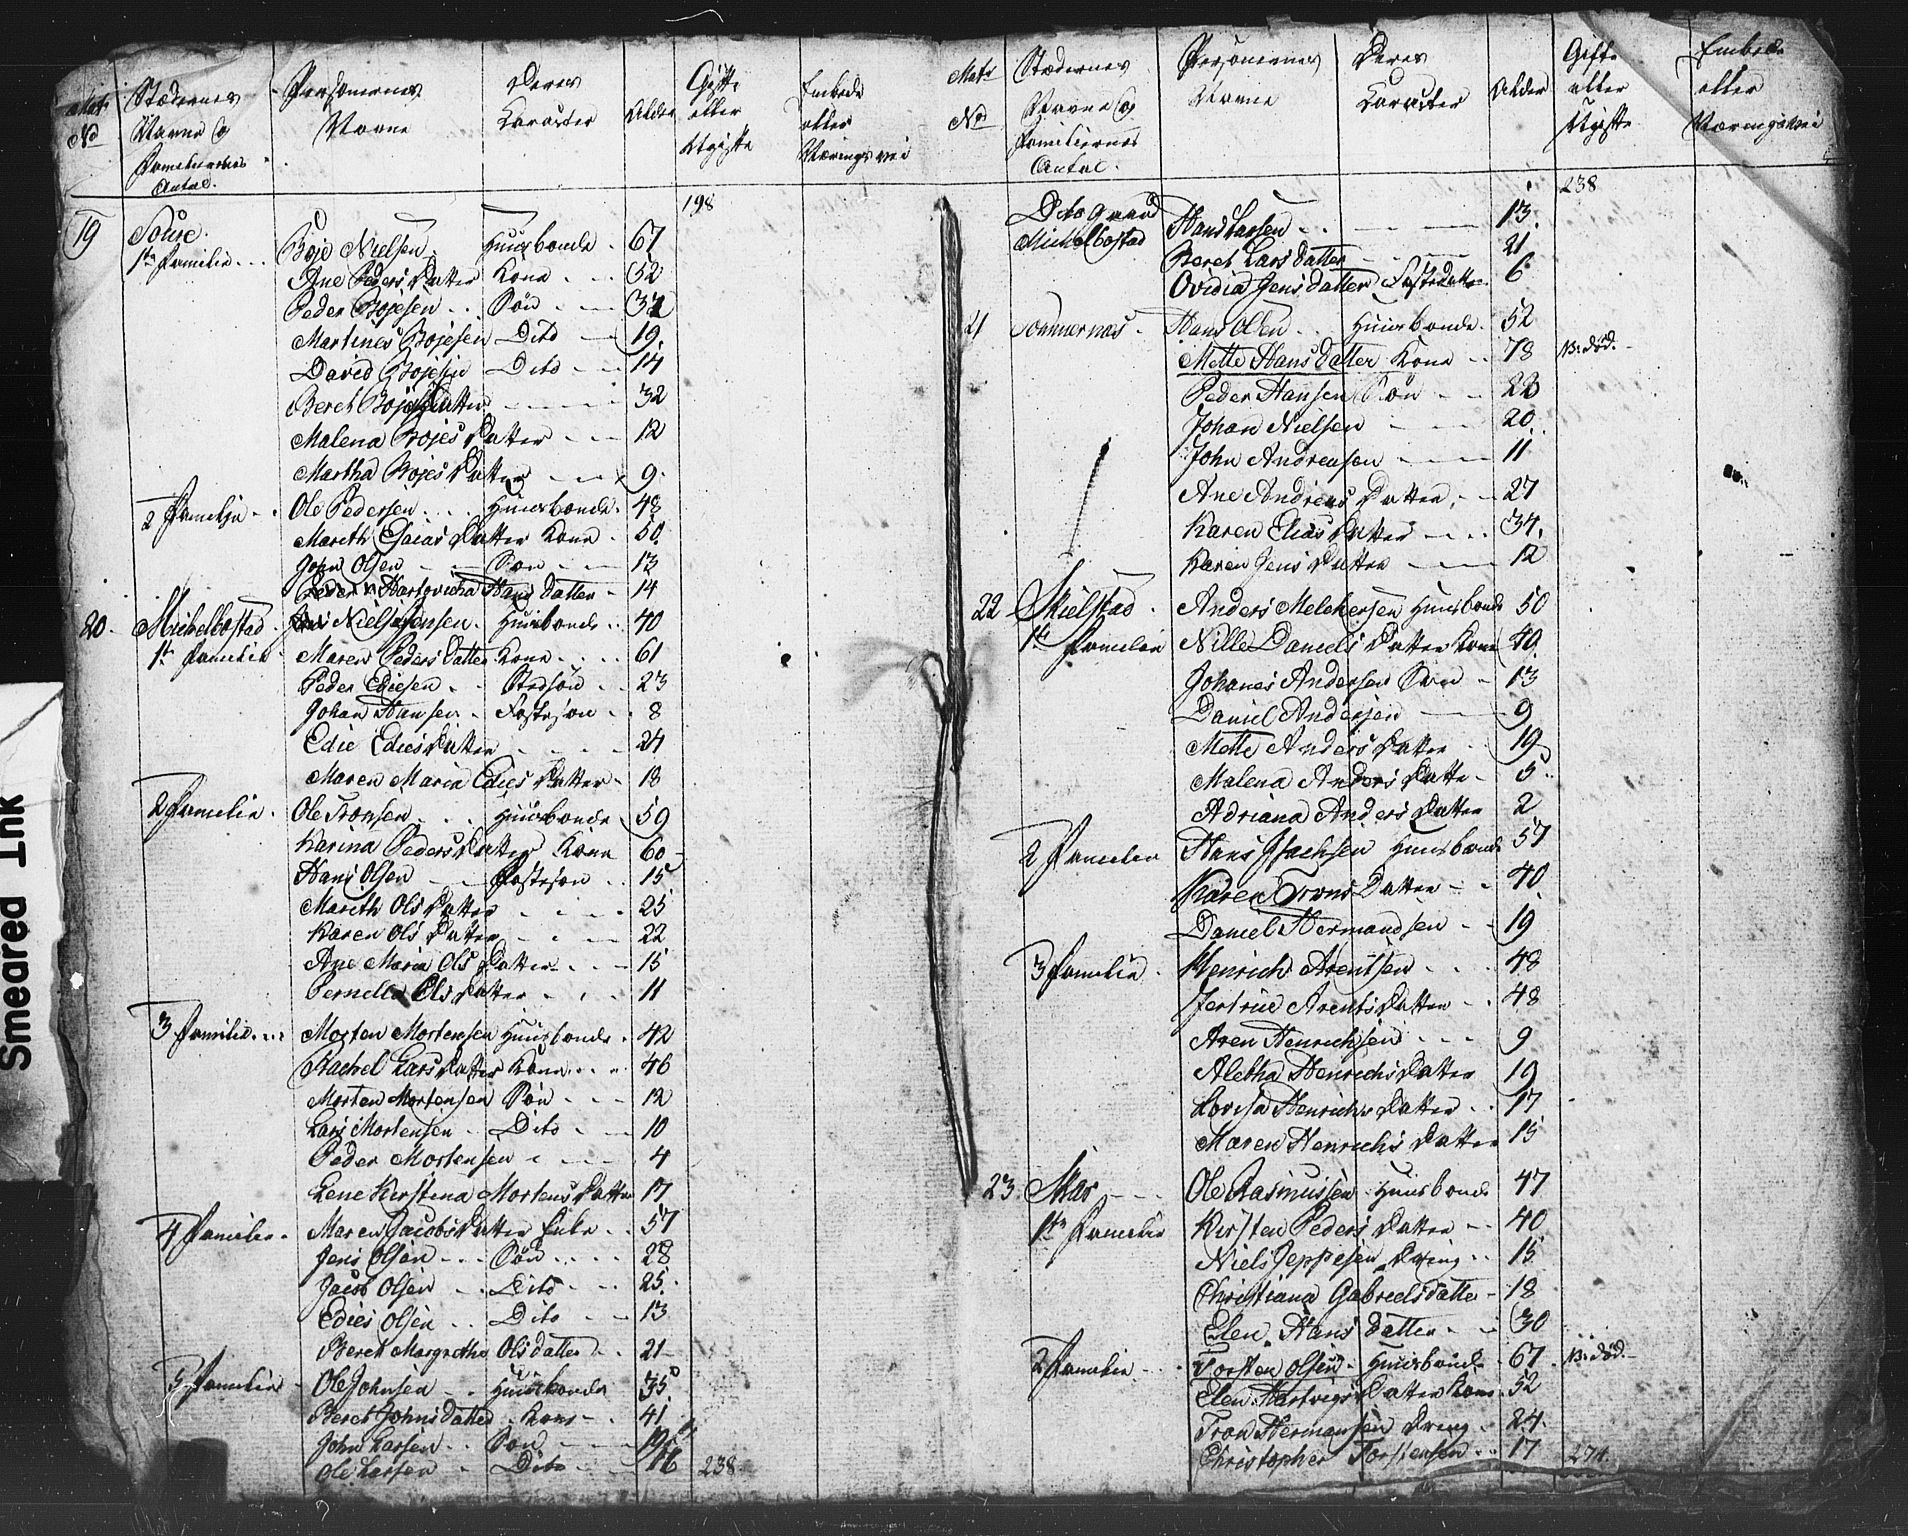 Matr No Stædernes Navne og Familiernes Antal. Personernes Navne Deres Karakter Alder Gifte eller Ugifte Embede eller Næringsvei
198
19 Boje Nielsen Huusbonde 67
1te Familie Ane Peders Datter Kone 52
Peder Bojesen Søn 32
Martines Bojesen Dito 19
David Bojesen Dito 14
Beret Bojes Datter 32
Malena Bojes Datter 12
Martha Bojes Datter 9
2 Familie Ole Pedersen Huusbonde 48
Mareth Esaias Datter Kone 50
John Olsen Søn 13
Hartovicha Hans Datter 14
20 Michelbostad Niels Jensen Huusbonde 40
1te Familie Maren Peders Datter Kone 61
Peder Ediesen Stedsøn 23
Johan Hansen Fostesøn 8
Edie Edies Datter 24
Maren Maria Edies Datter 18
2 Familie Ole Tronsen Huusbonde 59
Karina Peders Datter Kone 60
Hans Olsen Fostesøn 15
Mareth Ols Datter 25
Karen Ols Datter 22
Ane Maria Ols Datter 15
Pernella Ols Datter 11
3 Familie Morten Mortensen Huusbonde 42
Rachel Lars Datter Kone 46
Morten Mortensen Søn 12
Lars Mortensen Dito 10
Peder Mortensen 4
Lene Kirstina Mortens Datter 17
4 Familie Maren Jacobs Datter Enke 57
Jens Olsen Søn 28
Jacob Olsen Dito 25
Edies Olsen Dito 13
Beret Margrethe Olsdatter 21
5 Familie Ole Johnsen Huusbonde 35
Beret Johns Datter Kone 41
John Larsen Søn 19
Ole Larsen Dito 16 238
Matr No Stædernes Navne og Familiernes Antal. Personernes Navne Deres Karakter Alder Gifte eller Ugifte Embede eller Næringsvei
238
Dito gaard Hans Larsen 13
Michelbostad Beret Lars Datter 21
Ovidia Jens Datter Fosterdatter 6
21 Sommernas Hans Olsen Huusbonde 52
Mette Hans Datter Kone 78 N: død.
Peder Hansen Søn 22
Johan Nielsen 20
John Andreasen 11
Ane Andreas Datter 27
Karen Elias Datter 34
Karen Jens Datter 12
22 Skielstad Anders Melchersen Huusbonde 50
1te Familie Nille Daniels Datter Kone 40
Johanes Andersen Søn 13
Daniel Andersen 9
Mette Anders Datter 19
Malena Anders Datter 5
Adriana Anders Datter 2
2 Familie Hans Isachsen Huusbonde 57
Karen Trons Datter 40
Daniel Hermandsen 19
3 Familie Henrich Arentsen 48
Jertrue Arents Datter 48
Aren Henrichsen 9
Aletha Henrichs Datter 19
Lovisa Henrichs Datter 17
Maren Henrichs Datter 15
23 Skar Ole Rasmussen Huusbonde 47
1te Familie Kirsten Peders Datter 40
Niels Jeppesen Dreng 15
Christiana Gabrielsdatter 18
Elen Hans Datter 30
2 Familie Torsten Olsen Huusbonde 67 N: død.
Elen Hartvigs Datter Kone 52
Tron Hermansen Dreng 24
Christopher Torstensen 17 274
Smeared Ink